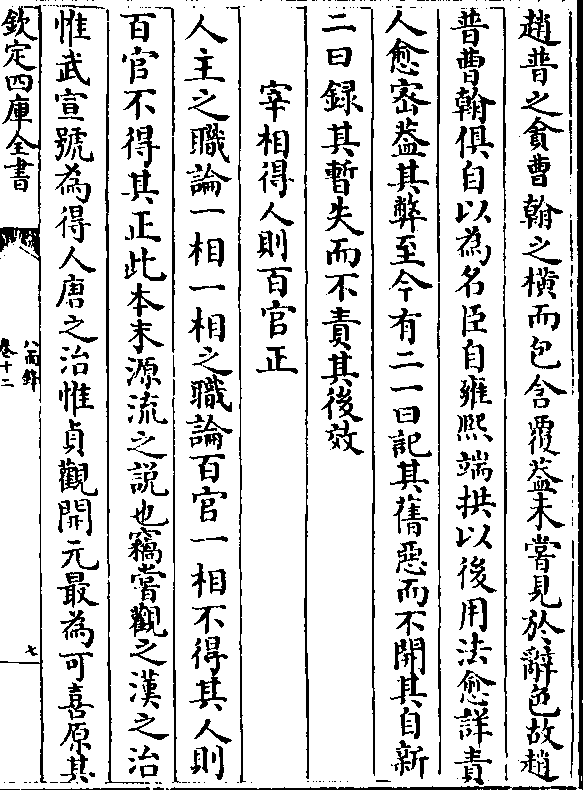 趙普之貪曹翰之横而包含覆葢未嘗見於辭色故趙
普曹翰俱自以為名臣自雍熙端拱以後用法愈詳責
人愈宻葢其弊至今有二一曰記其舊惡而不開其自新
二曰録其暫失而不責其後效
宰相得人則百官正
人主之職論一相一相之職論百官一相不得其人則
百官不得其正此本末源流之説也竊嘗觀之漢之治
惟武宣號為得人唐之治惟貞觀開元最為可喜原其
欽定四庫全書
八面鋒
卷十二
七